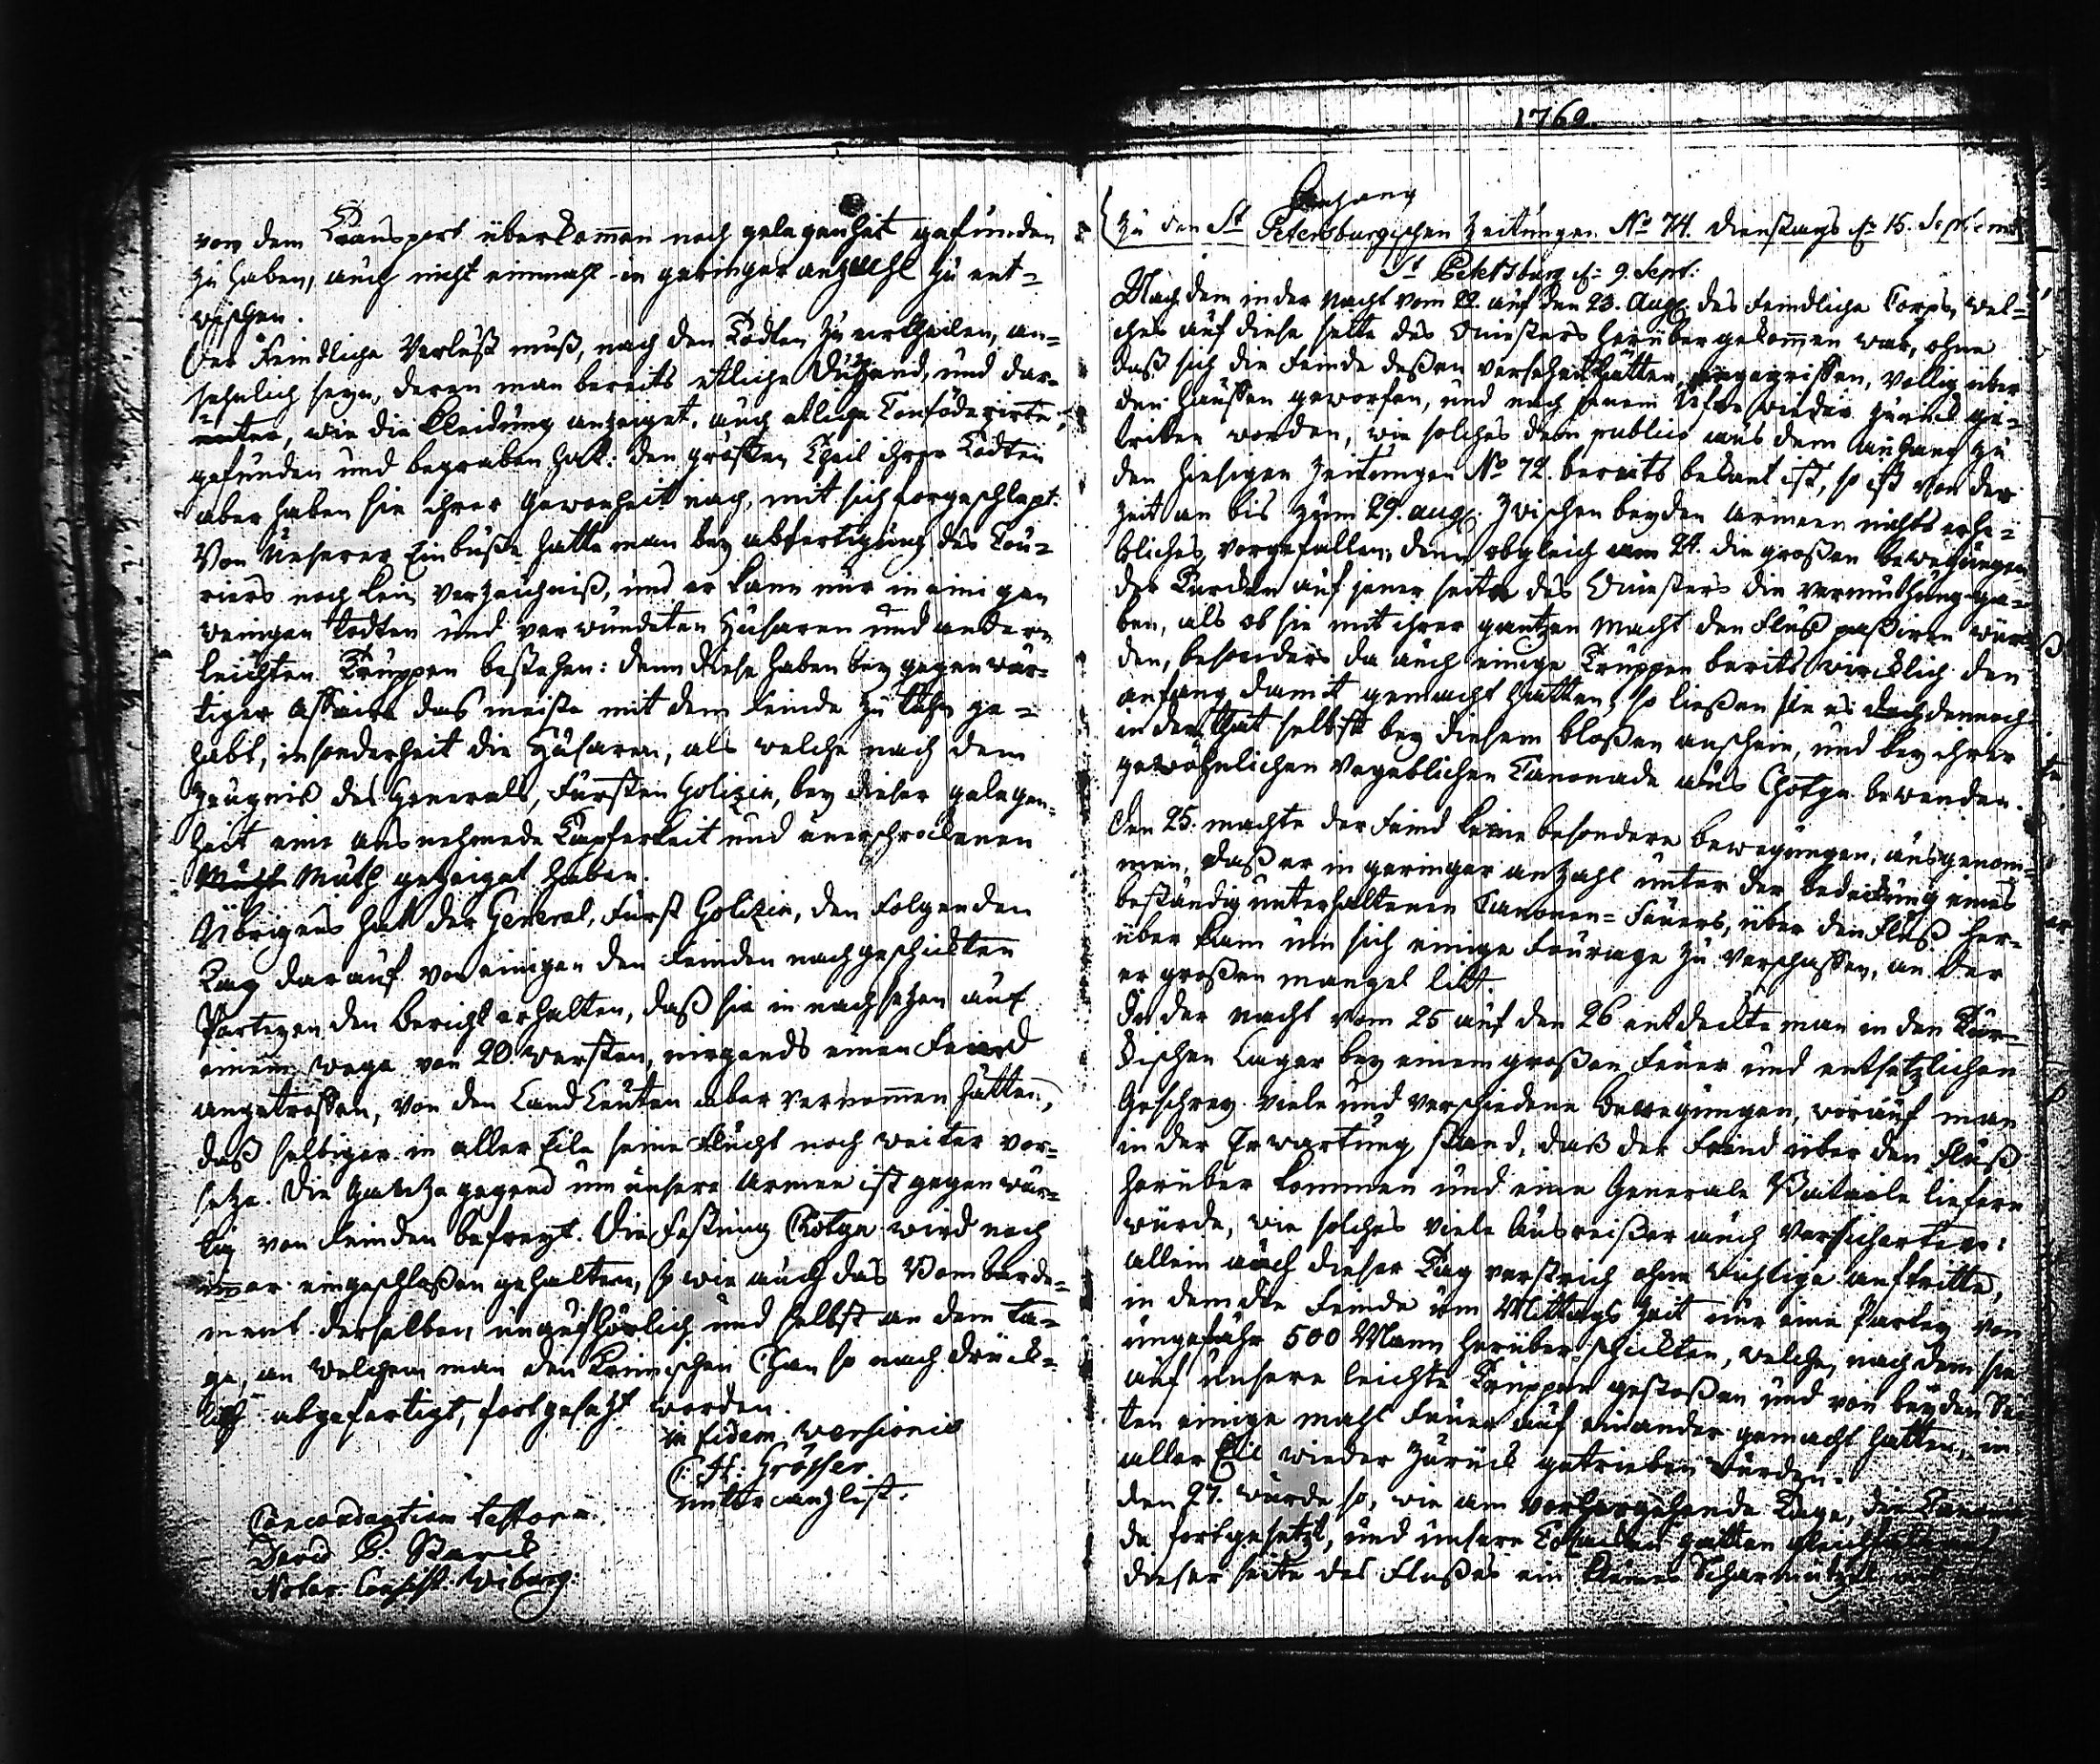 von dem Transport überkommen noch gelegenheit gefunden
zu haben, auch nicht einmahl in geringer anzahl zu ent=
wischen.
Der Feindliche Verlust muß, nach den Todten zu urtheilen, an=
sehnlich seyn, deren man bereits etliche Dutzend, und dar=
unter, wie die Kleidung anzeiget, auch etliche Conföderirte,
gefunden und begraben hat: den grösten Theil ihrer Todten
aber haben sie ihrer Gewonheit nach, mit sich forgeschlept.
Von Unserer Einbuße hatte man bey abfertigung des Cou=
riers noch kein Verzeichniß, und er kann nur in einigen
wenigen todten und verwundeten Husaren und andern
leichten Truppen bestehen: denn diese haben bey gegenwär=
tiger Affaire das meiste mit dem Feinde zu thun ge=
habt, insonderheit die Husaren, als welche nach dem
Zeugniß des Generals, Fürsten Golizin, bey dieser gelegen=
heit eine ausnehmede Tapferkeit und unerschrockenen
Muth gezeiget haben.
Übrigens hat der General, Fürst Golizin, den folgenden
Tag darauf von einigen den Feinden nachgeschickten
Parteyen den Bericht erhalten, daß sie in nachsetzen auf
einem Wege von 20. Wersten, nirgends einen Feind
angetroffen, von den Landleuten aber vernommen hätten,
daß selbiger in aller Eile seine Flucht noch weiter vor=
setze. Die Gantze gegend um unsere Armee ist gegenwär=
tig von Feinden befreyt. Die Festung Chotzin wird noch
immer eingeschloßen gehalten, so wie auch das Bombarde=
ment derselben, unaufhörlich und selbst an dem ta=
ge, an welchem man den Krimischen Chan so nachdrück=
lich abgefertigt, fortgesetzt worden.
in fidem versionis
C: H: Grösser.
Unter canzlist.
Concordantiam testor
David C: Starck
Notar: Consist: Wiburg:
1769.
Anhang
Zu den St Petersburgischen Zeitungen No 74. Dienstags d. 15. Septemb
St Petersburg d: 9. Sept:
Nachdem in der Nacht vom 22. auf den 23. Aug. das feindliche Corps, wel=
ches auf diese seite des Dniesters herüber gekommen war, ohne
daß sich die Feinde deßen versehen hätten, angegriffen, völlig über
den Hauffen geworfen, und nach jenem Ufer wieder zurück ge=
trieben worden, wie solches dem publico aus dem Anhang zu
den hiesigen Zeitungen No 72. bereits bekant ist, so ist von der
Zeit an bis zum 29. aug. zwischen beyden Armeen nichts erhe=
bliches vorgefallen; denn obgleich am 24. die großen bewegungen
der Türcken auf jener seite des Dniesters die vermuthung ga=
ben, als ob sie mit ihrer gantzen Macht den Fluß passiren wür=
den, besonders da auch einige Truppen bereits wircklich den
anfang damit gemacht hatten, so ließen sie es dennoch
in der That selbst bey diesem bloßen anschein, und bey ihrer
gewöhnlichen vergeblichen Canonade aus Chotzin bewenden.
Den 25. machte der Feind keine besondere bewegungen, ausgenom=
men, daß er in geringer anzahl unter der bedeckung eines
beständig unterhaltenen Canonen= Feuers, über den Fluß her=
über kam um sich einige Fourage zu verschaffen, an der
er großen mangel litt.
In der nacht vom 25 auf den 26 entdeckte man in den Tür=
ckischen Lager bey einem großen Feuer und entsetzlichen
Geschrey viele und verschiedene bewegungen, worauf man
in der Erwartung stand, daß der Feind über den Fluß
herüber kommen und eine Generale Bataile liefern
würde, wie solches viele Ausreißer auch versicherten:
allein auch dieser Tag verstrich ohne wichtige auftritte,
in dem die Feinde um Mittags Zeit nur eine Partey von
ungefähr 500 Mann herüber schickten, welche, nach dem sie
auf Unsere leichte Truppen gestoßen und von beyden Sei
ten einige mahl Feuer auf einander gemacht hatten, in
aller Eil wieder zurück getrieben wurden.
Den 27. wurde so, wie am vorhergehende Tage, die Canona
de fortgesetzt, und unsere Cosacken hatten
dieser seite des Flußes ein kleines Scharmützel mit